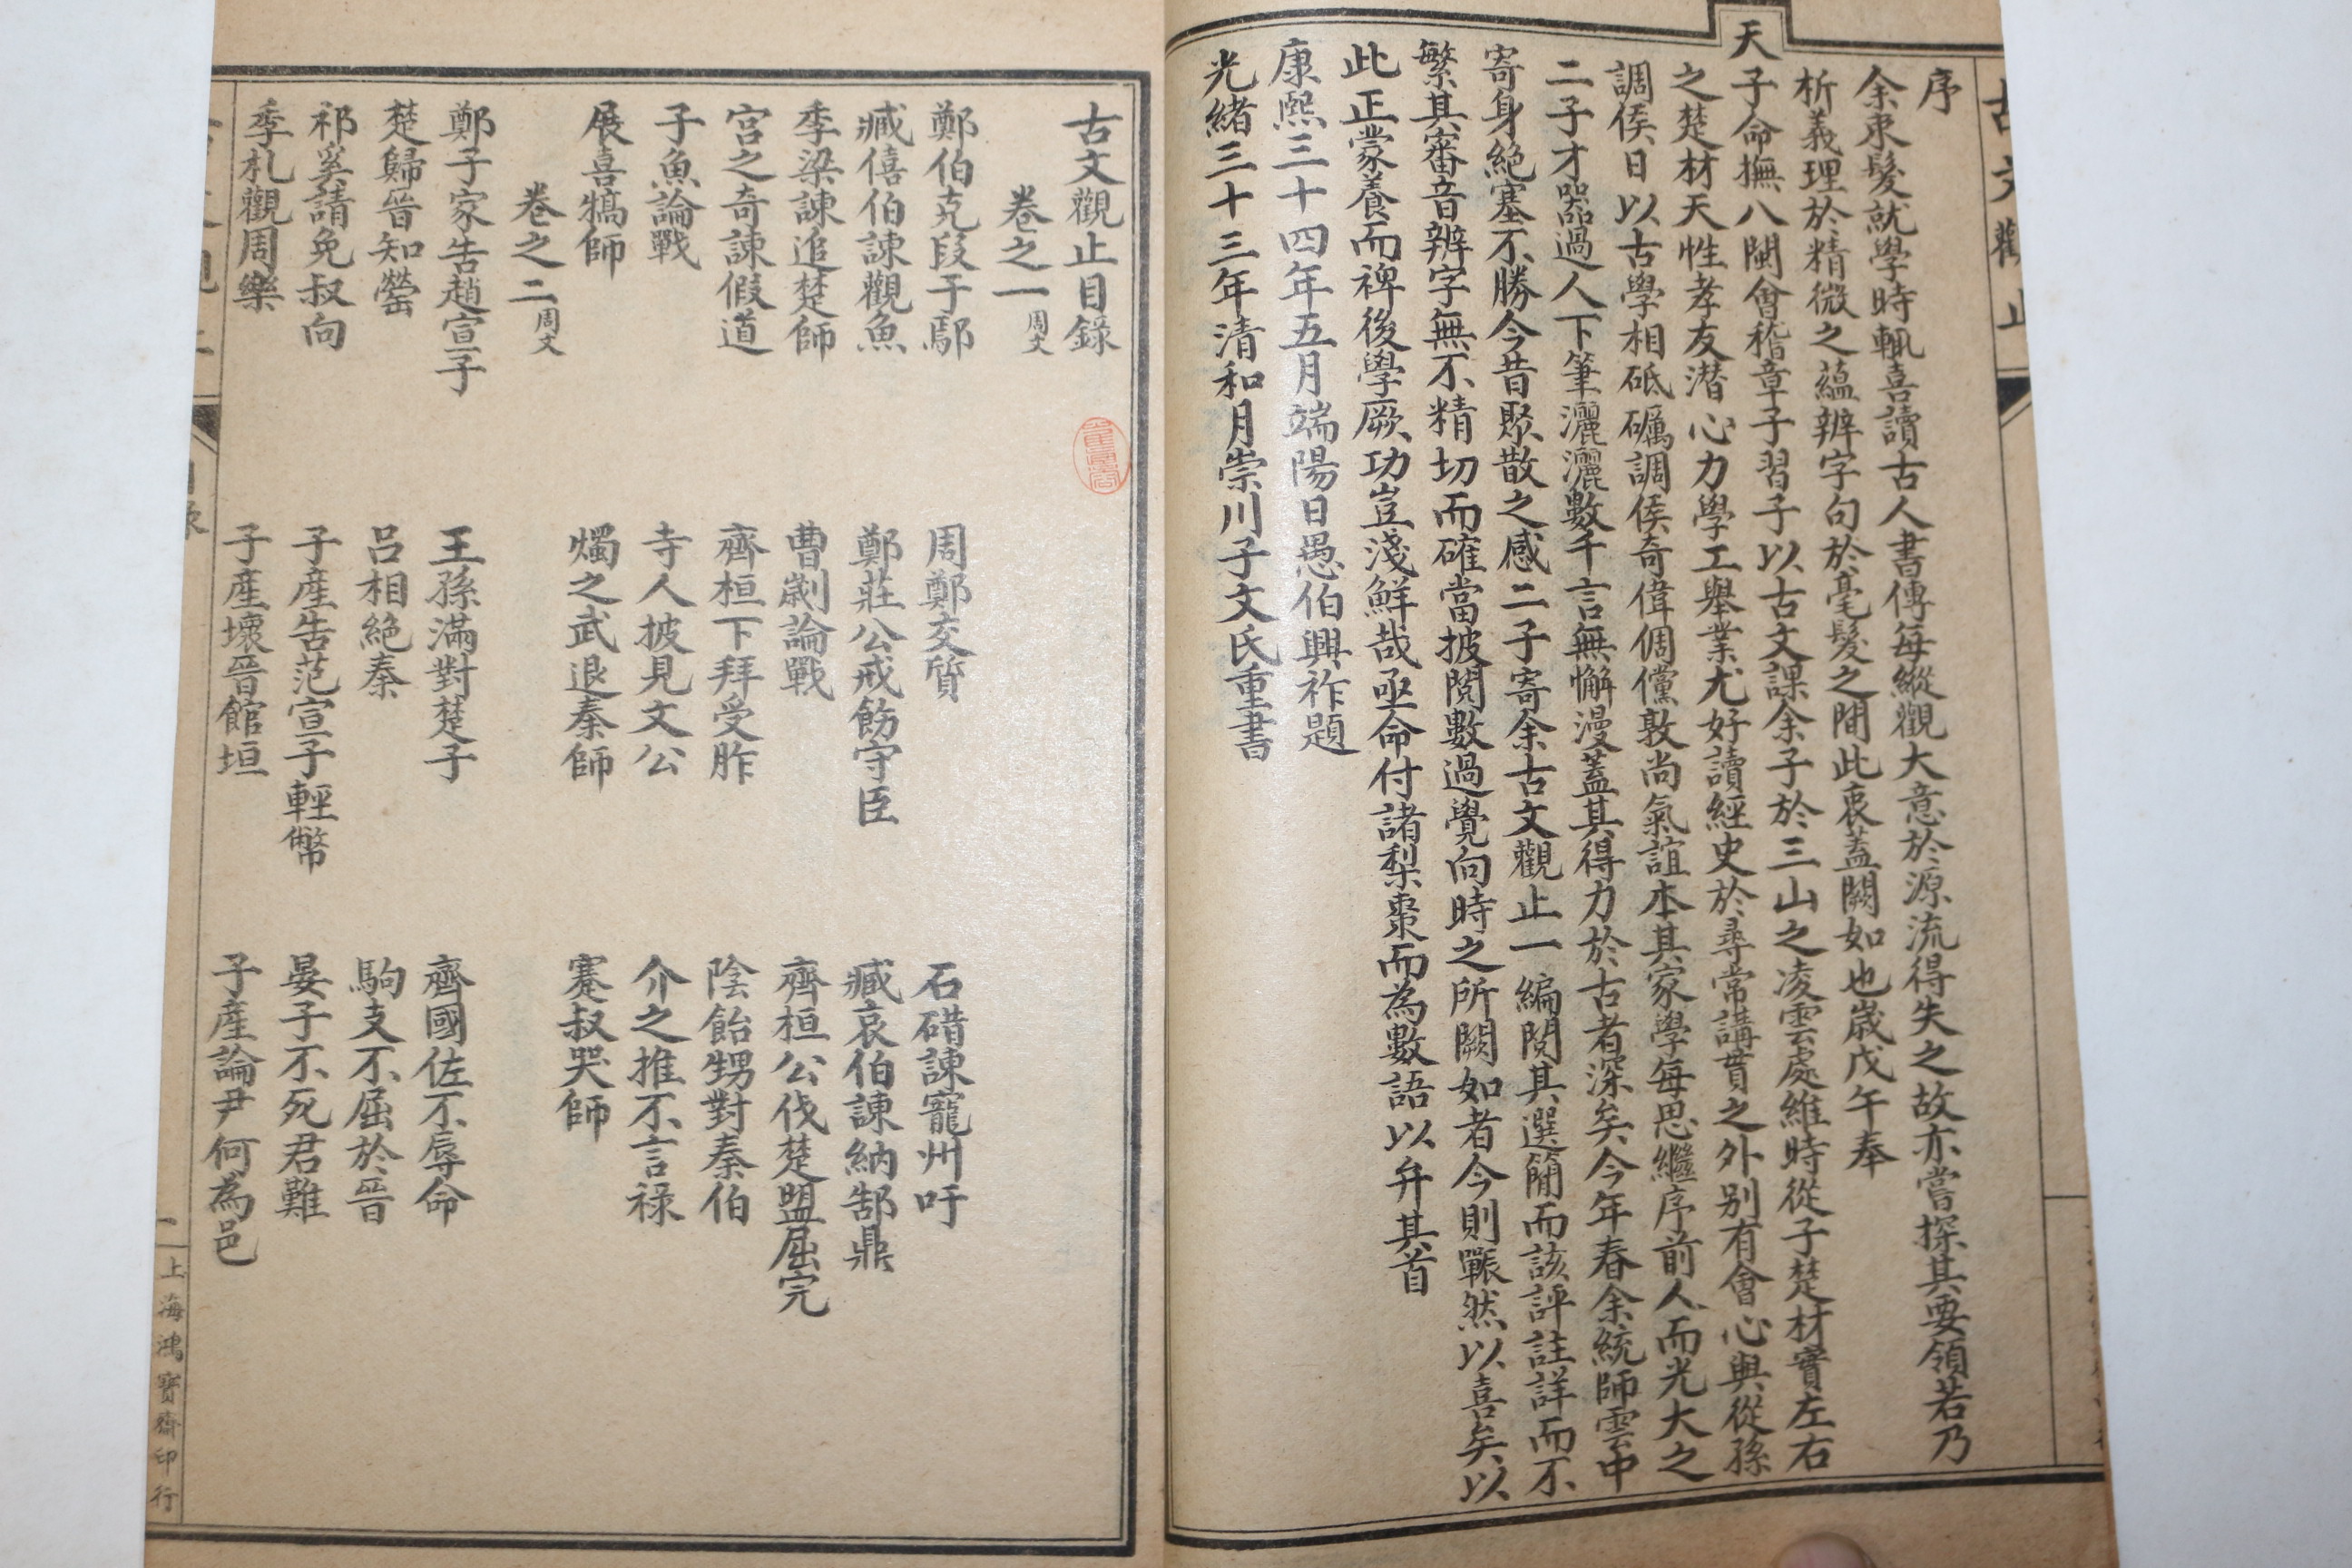 古文觀止
序
余束髮就學時輒喜讀古人書傳每縱觀大意於源流得失之故亦嘗探其要領若乃
析義理於精微之蘊辨字句於毫髮之間此衷蓋闕如也歲戊午奉
天子命撫八閩會稽章子習子以古文課余子於三山之凌雲處維時從子楚材實左右
之楚材天性孝友潛心力學工舉業尤好讀經史於尋常講貫之外別有會心與從孫
調侯日以古學相砥礪調侯奇偉倜儻敦尚氣誼本其家學每思繼序前人而光大之
二子才器過人下筆灑灑數千言無懈漫蓋其得力於古者深矣今年春余統師雲中
寄身絕塞不勝今昔聚散之感二子寄余古文觀止一編閱其選簡而該評註詳而不
繁其審音辨字無不精切而確當披閱數過覺向時之所闕如者今則囅然以喜矣以
此正蒙養而裨後學厥功豈淺鮮哉亟命付諸梨棗而為數語以弁其首
康熙三十四年五月端陽日愚伯興祚題
光緒三十三年清和月崇川子文氏重書
古文觀止目錄
卷之一周文
鄭伯克段于鄢 周鄭交質 石碏諫寵州吁
臧僖伯諫觀魚 鄭莊公戒飭守臣 臧哀伯諫納郜鼎
季梁諫追楚師 曹劌論戰 齊桓公伐楚盟屈完
宮之奇諫假道 齊桓下拜受胙 陰飴甥對秦伯
子魚論戰 寺人披見文公 介之推不言祿
展喜犒師 燭之武退秦師 蹇叔哭師
卷之二周文
鄭子家告趙宣子 王孫滿對楚子 齊國佐不辱命
楚歸晉知罃 呂相絕秦 駒支不屈於晉
祁奚請免叔向 子產告范宣子輕幣 晏子不死君難
季札觀周樂 子產壞晉館垣 子產論尹何為邑
目錄
一
上海鴻寶齋印行